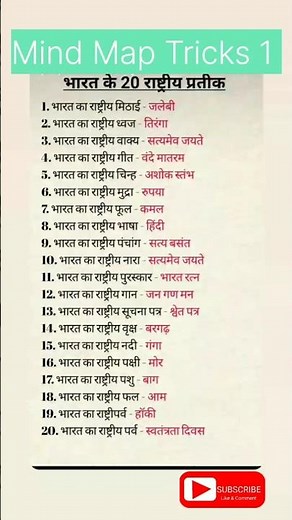 Mind Map Tricks 1
भारत के 20 राष्ट्रीय प्रतीक
1. भारत का राष्ट्रीय मिठाई - जलेबी
2. भारत का राष्ट्रीय ध्वज - तिरंगा
3. भारत का राष्ट्रीय वाक्य - सत्यमेव जयते
4. भारत का राष्ट्रीय गीत - वंदे मातरम
5. भारत का राष्ट्रीय चिन्ह - अशोक स्तंभ
6. भारत का राष्ट्रीय मुद्रा - रुपया
7. भारत का राष्ट्रीय फूल - कमल
8. भारत का राष्ट्रीय भाषा - हिंदी
9. भारत का राष्ट्रीय पंचांग - सत्य बसंत
10. भारत का राष्ट्रीय नारा - सत्यमेव जयते
11. भारत का राष्ट्रीय पुरस्कार - भारत रत्न
12. भारत का राष्ट्रीय गान - जन गण मन
13. भारत का राष्ट्रीय सूचना पत्र - श्वेत पत्र
14. भारत का राष्ट्रीय वृक्ष - बरगढ़
15. भारत का राष्ट्रीय नदी - गंगा
16. भारत का राष्ट्रीय पक्षी - मोर
17. भारत का राष्ट्रीय पशु - बाग
18. भारत का राष्ट्रीय फल - आम
19. भारत का राष्ट्रीपर्व - हॉकी
20. भारत का राष्ट्रीय पर्व - स्वतंत्रता दिवस
SUBSCRIBE
Like & Comment